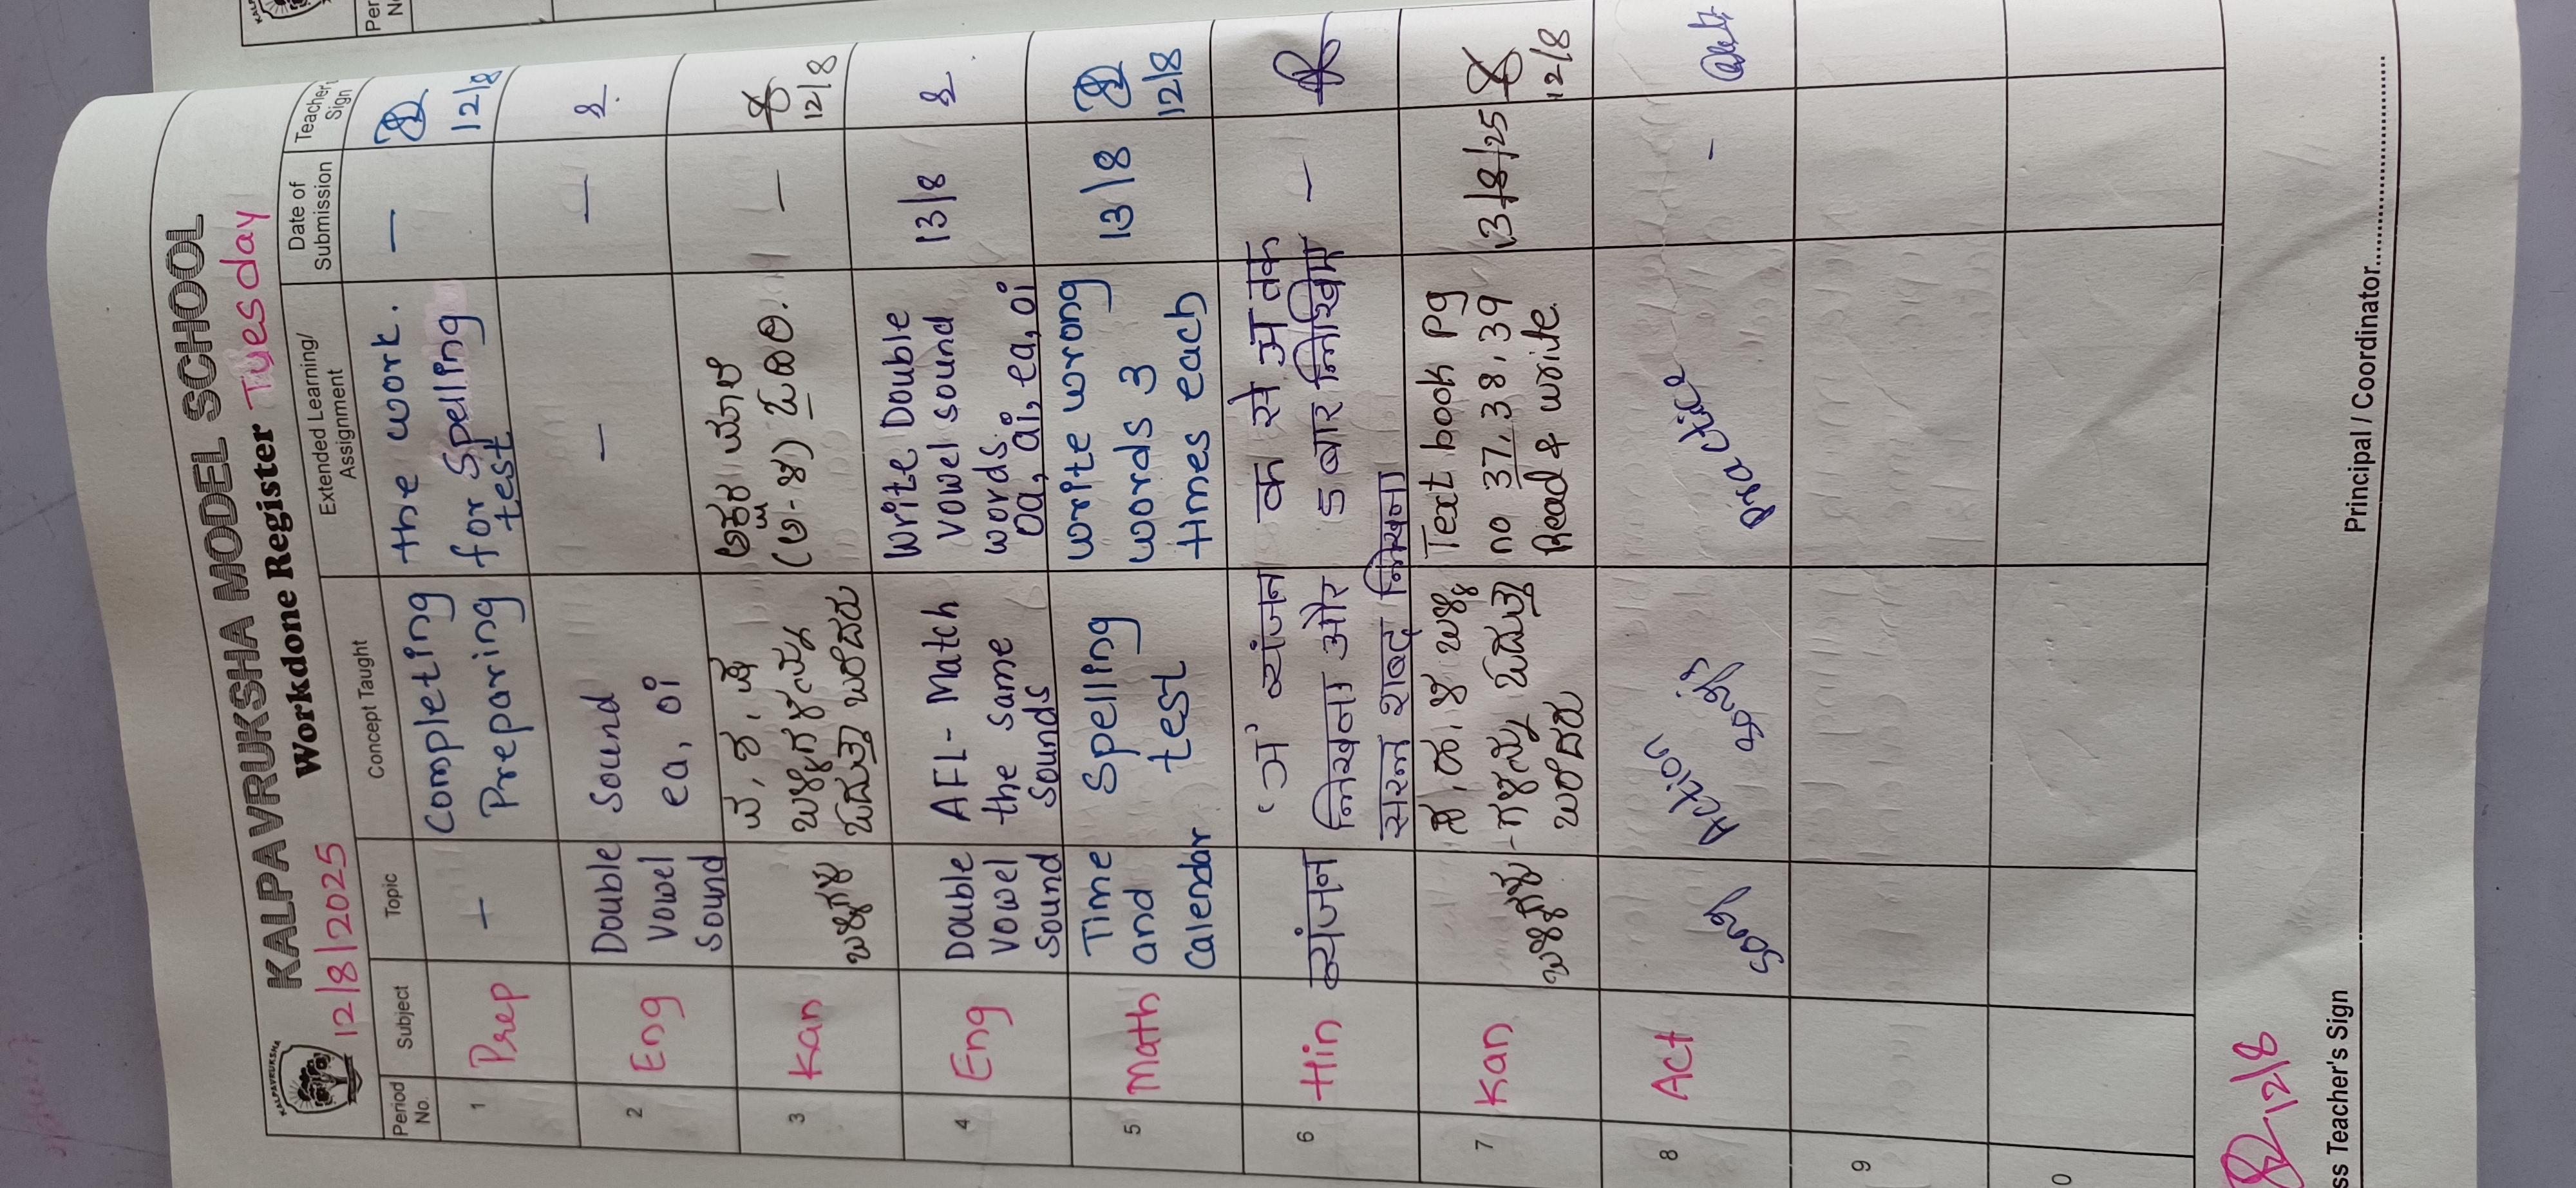 KALPAVRUKSHA
KALPAVRUKSHA MODEL SCHOOL
12/8/2025 Workdone Register Tuesday
Period No. Subject Topic Concept Taught Extended Learning/ Assignment Date of Submission Teacher Sign
1 Prep — Completing the work. —
Preparing for Spelling test 12/8
2 Eng Double Vowel Sound Sound ea, oi — —
3 Kan ಬಳ್ಳಿಗಳ —
12/8
4 Eng Double Vowel Sound AFL- Match the same sounds Write Double vowel sound words. oa, ai, ea, oi 13/8
5 Math Time and Calendar Spelling test write wrong words 3 times each 13/8 12/8
6 Hin व्यंजन 'ञ' व्यंजन लिखना और सरल शब्द लिखना क से ञ तक 5 बार लिखिए —
7 Kan Text book pg no 37, 38, 39 Read & write. 13/8/25 12/8
8 Act song Action song practice -
9
0
12/8
ss Teacher's Sign Principal / Coordinator